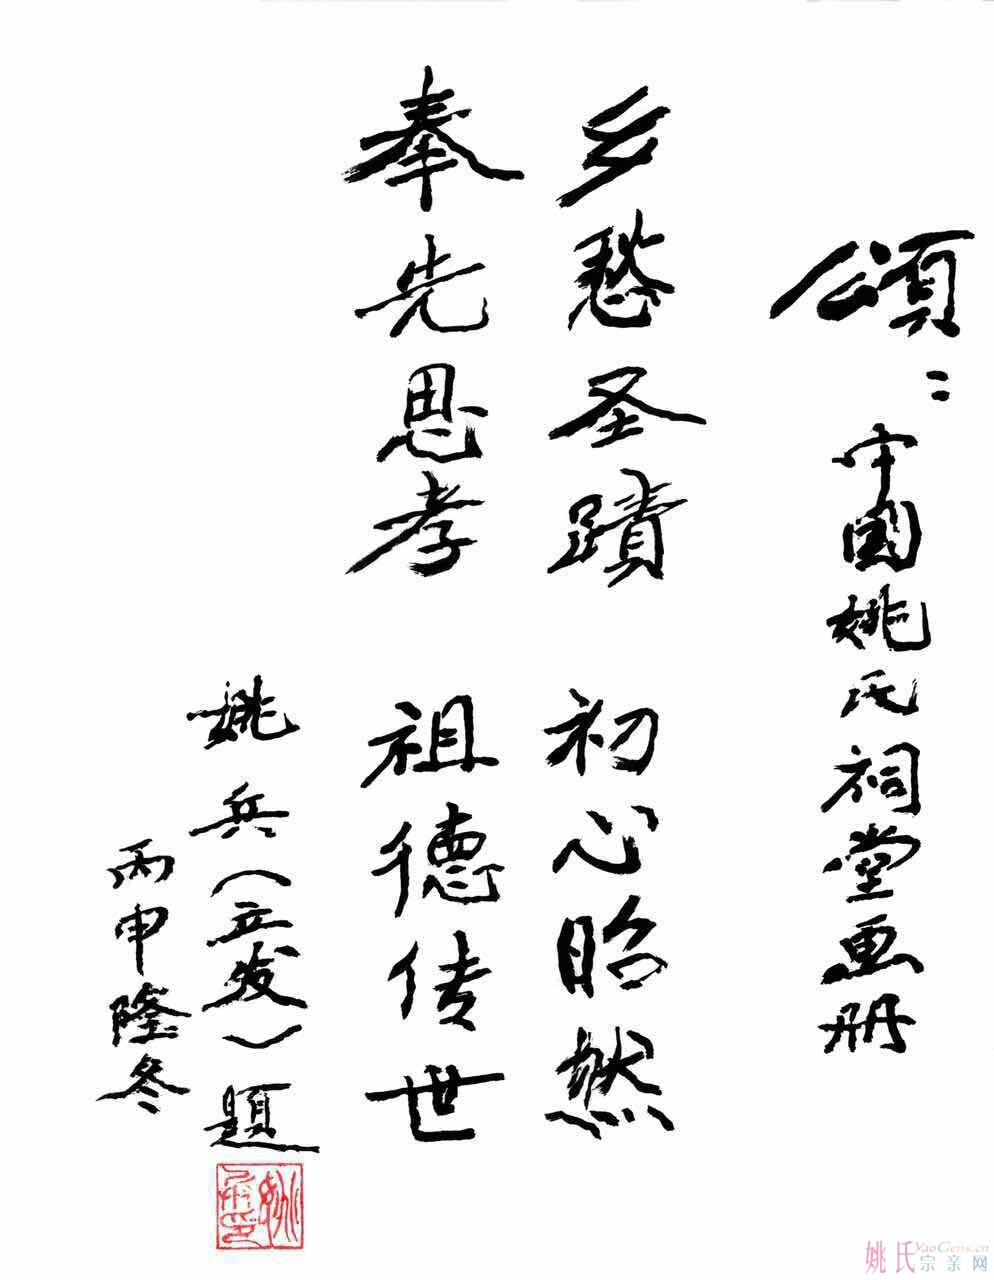 頌：中國姚氏祠堂画册
乡愁圣蹟 初心昭然
奉先思孝 祖德传世
姚兵（立发）题
丙申隆冬
姚氏
YaoGens.cn
宗亲网